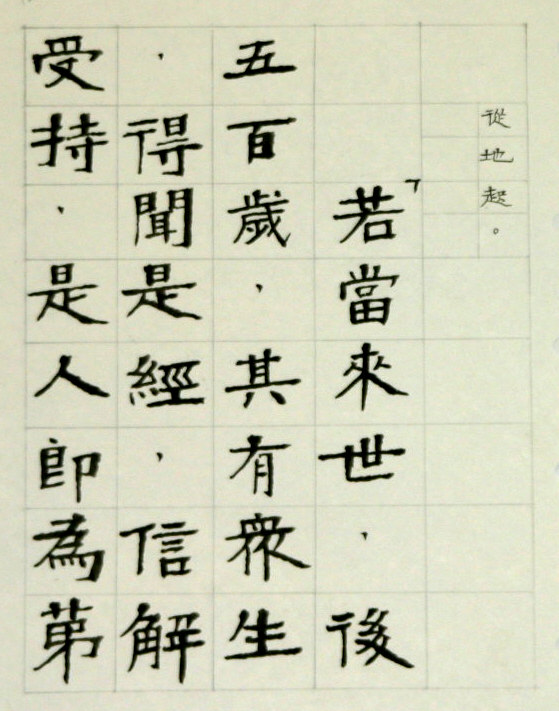 從地起。
「若當來世，後
五百歲，其有衆生
，得聞是經，信解
受持，是人即為苐